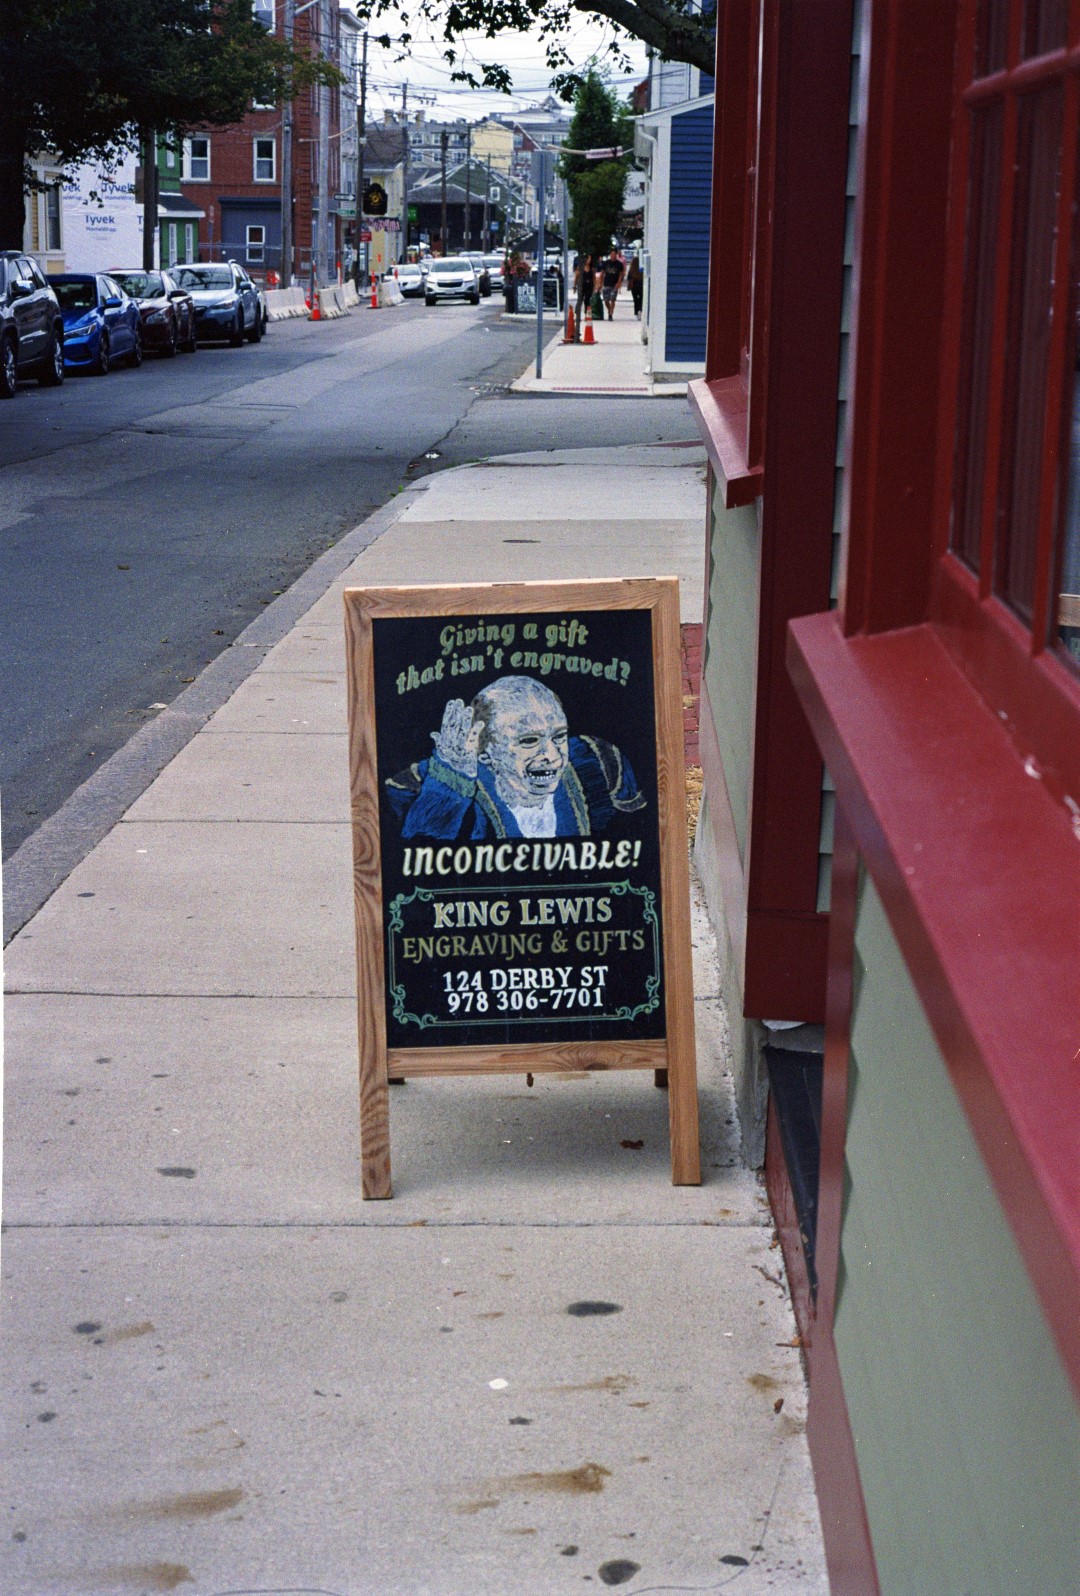 Tyvek
HomeWrap
OPEN
Giving a gift
that isn't engraved?
INCONCEIVABLE!
KING LEWIS
ENGRAVING & GIFTS
124 DERBY ST
978 306-7701